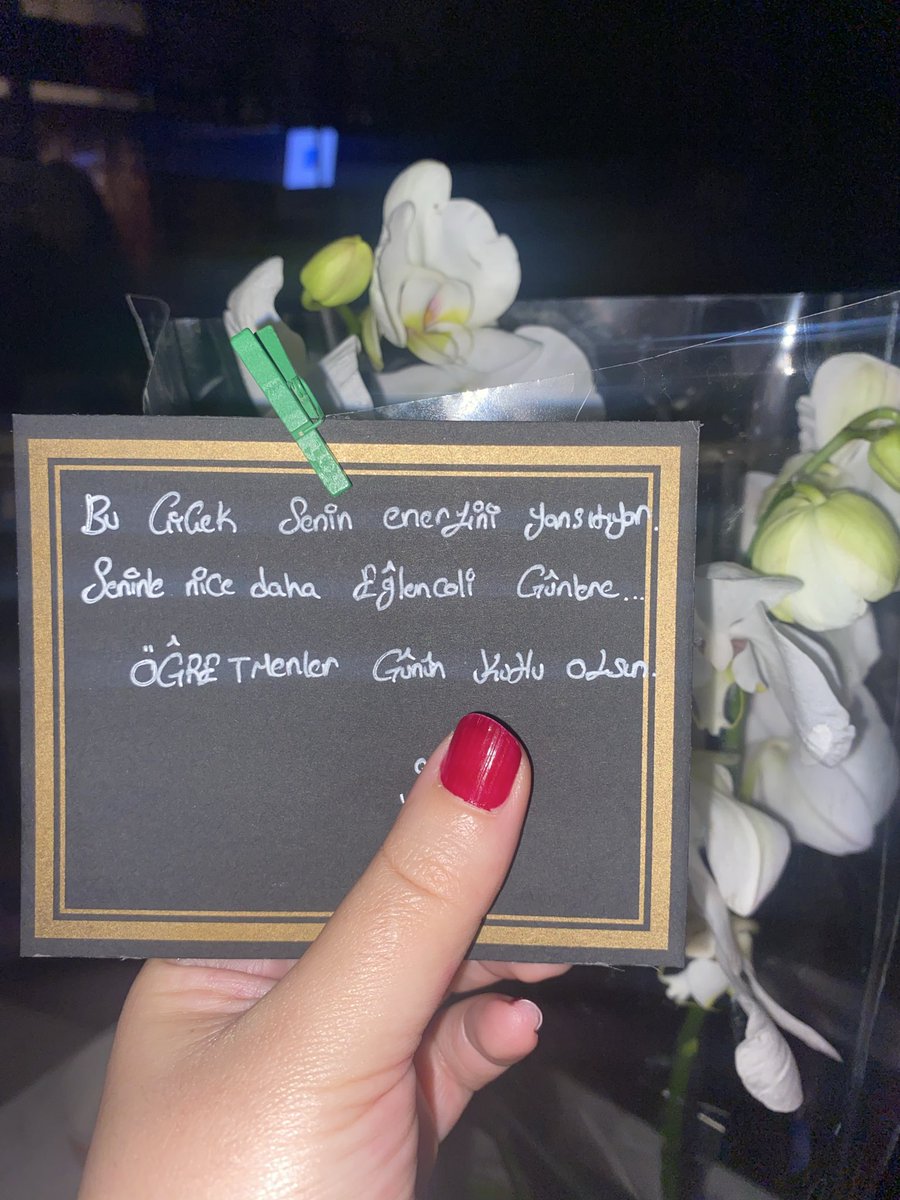 Bu Çiçek Senin enerjini yansıtıyor.
Seninle nice daha Eğlenceli Günlere...
ÖĞRETMenler Günün Kutlu olsun.